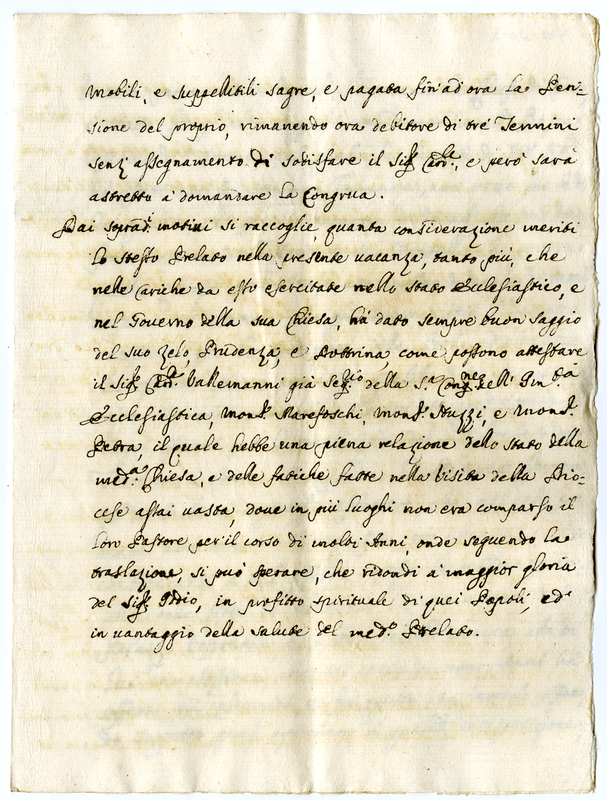 mobili, e suppellitili sagre, e pagata fin'ad ora la Pen=
sione del proprio, rimanendo ora debitore di tré Termini
senz' assegnamento di sodisfare il Sig.r Card.le, e peró sará
astretto á domandare la Congrua.
Dai soprad.i motivi si raccoglie, quanta considerazione meriti
lo stesso Prelato nella presente vacanza, tanto piú, che
nelle cariche da esso esercitate nello stato Ecclesiastico, e
nel Governo della sua Chiesa, há dato sempre buon saggio
del suo zelo, Prudenza, e Dottrina, come possono attestare
il Sig.r Card.le Vallemanni giá Seg.rio della S.a Cong.ne dell' Im.tá
Ecclesiastica, Mons.r Marefoschi, Mons.r Nuzzi, e Mons.r
Petra, il quale hebbe una piena relazione dello stato della
med.a Chiesa, e delle fatiche fatte nella Visita della Dio=
cese assai vasta, dove in piú luoghi non era comparso il
loro Pastore per il corso di molti Anni, onde seguendo la
traslazione, si puó sperare, che ridondi á maggior gloria
del Sig.r Iddio, in profitto spirituale di quei Popoli, ed
in vantaggio della salute del med.o Prelato.